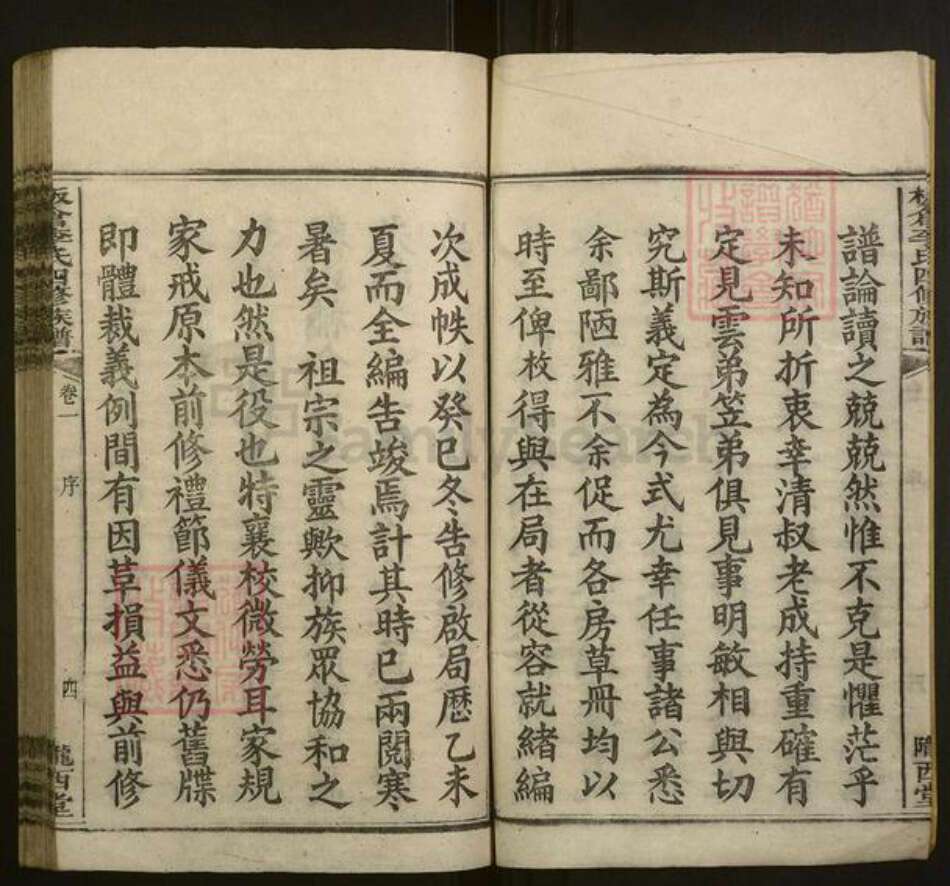 譜論讀之兢兢然惟不克是懼茫乎
未知所折衷幸清叔老成持重確有
定見雲弟笠弟俱見事明敏相與切
究斯義定為今式尤幸任事諸公悉
余鄙陋雅不余促而各房草冊均以
時至俾枚得與在局者從容就緒編
次成帙以癸巳冬告修啟局歷乙未
夏而全編告竣焉計其時已兩閱寒
暑矣 祖宗之靈歟抑族眾協和之
力也然是役也特襄校微勞耳家規
家戒原本前修禮節儀文悉仍舊牒
即體裁義例間有因草損益與前修
板倉李氏四修族譜 卷一 序 四 隴西堂